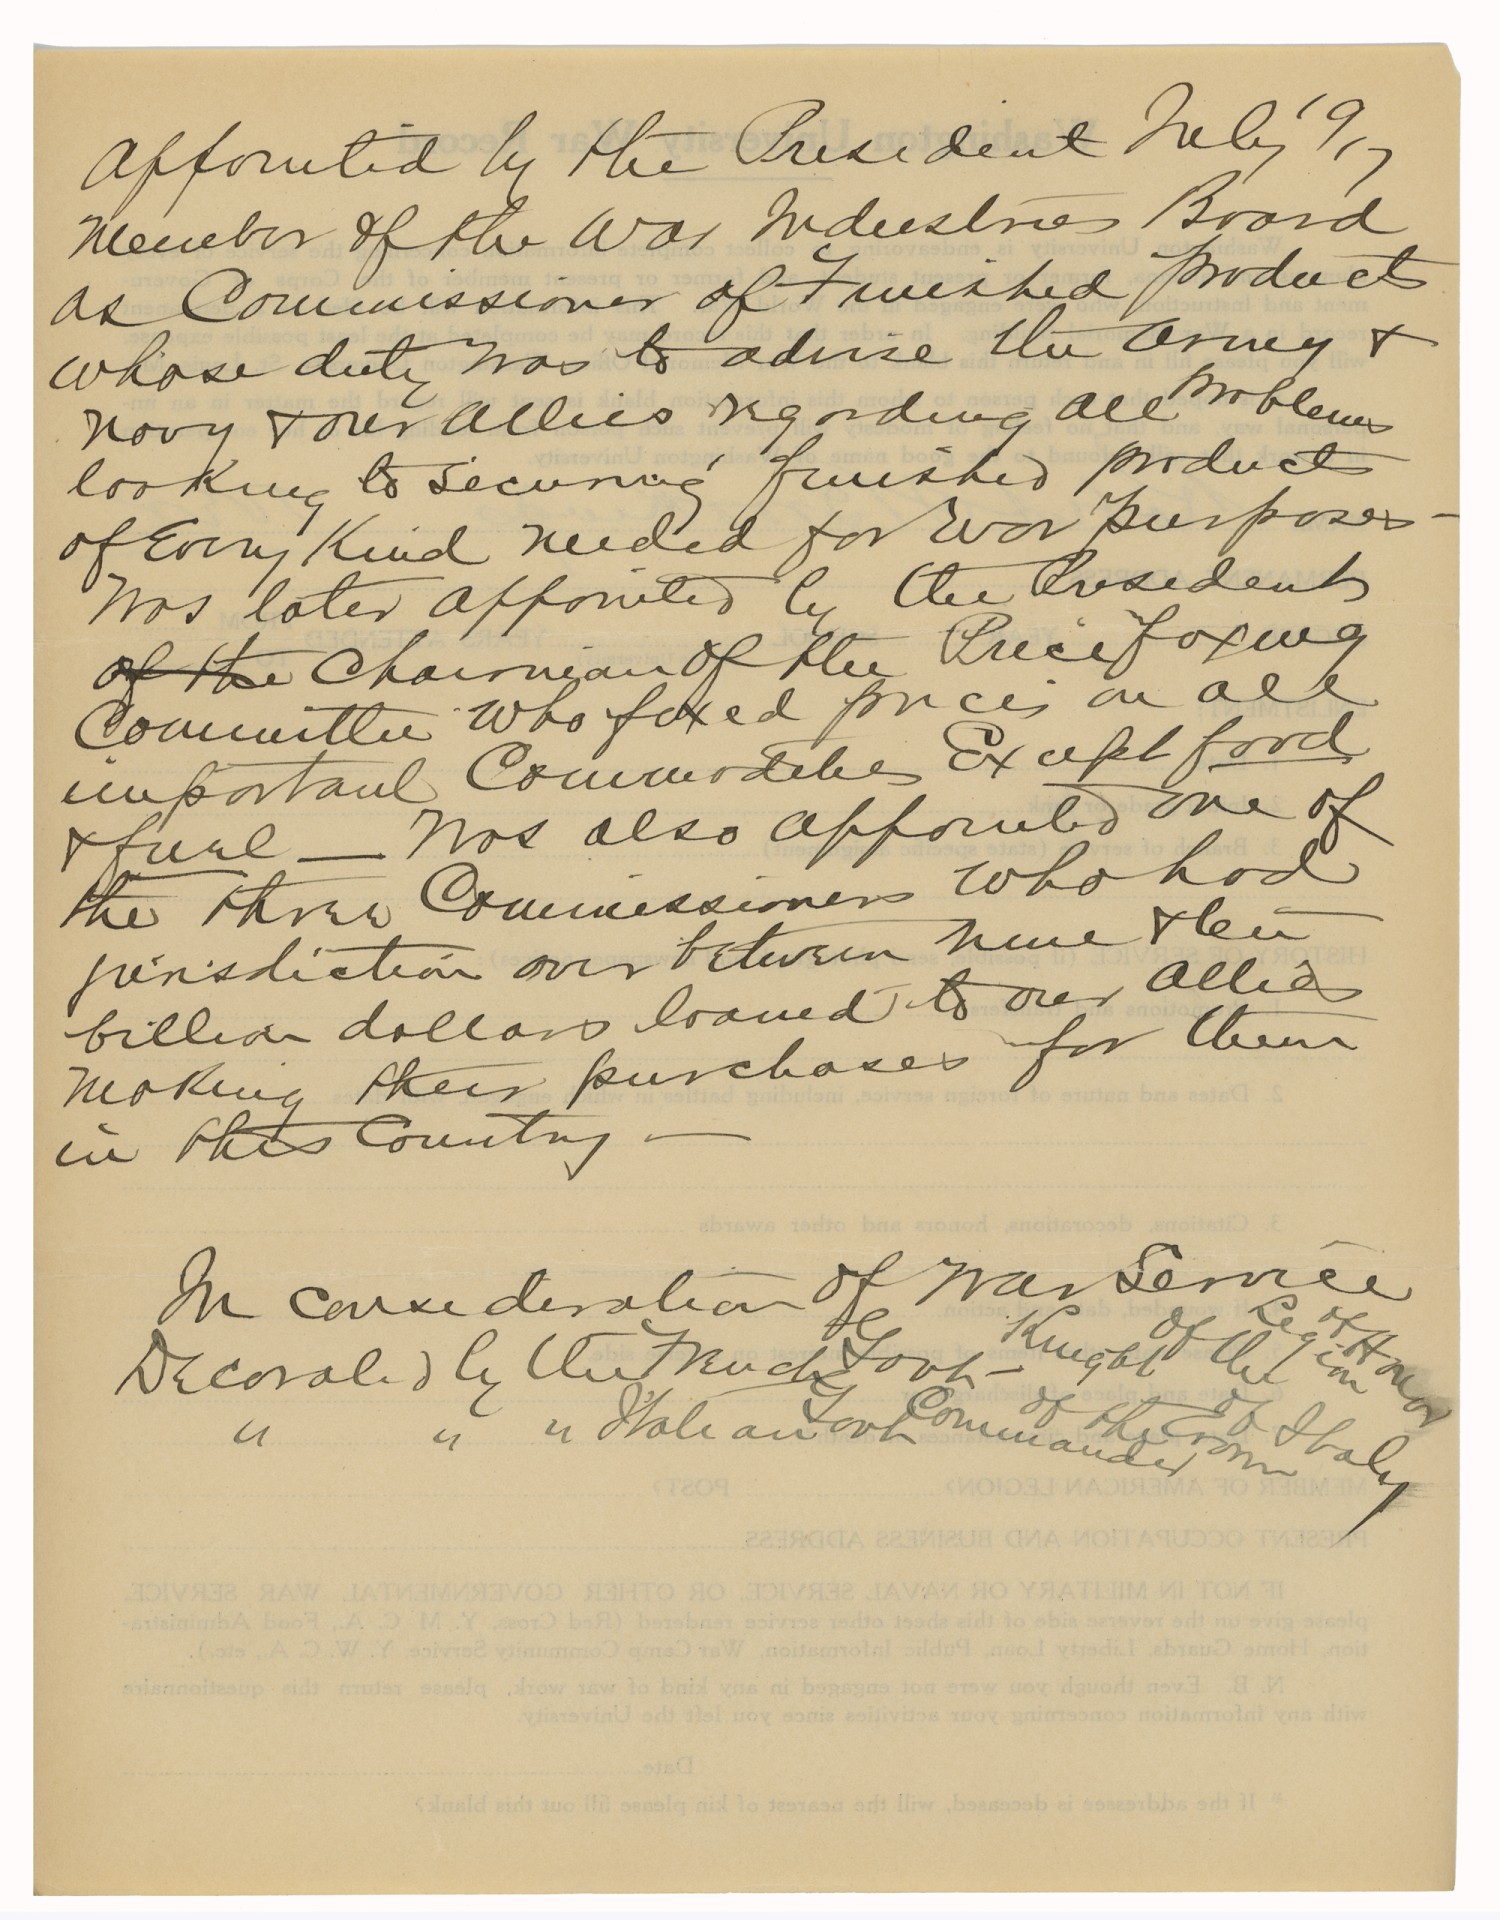 Appointed by the President July 1917
Member of the War Industries Board
as Commissioner of Finished Products
whose duty was to advise the Army &
Navy & our Allies regarding all problems
looking to securing finished products
of Every Kind needed for War purposes -
Was later appointed by the President
of the Chairman of the Price fixing
Committee who fixed prices on all
important Commodities Except food
& fuel — Was also appointed one of
the three Commissioners who had
jurisdiction over between nine & ten
billion dollars loaned to our Allies
Making their purchases for them
in this Country —
In consideration of War Service
Decorated by the French Govt - Knight of the Legion of Honor
" " " Italian Govt Commander of the Crown of Italy